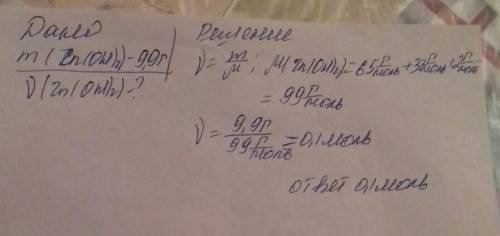 Дано
m(Zn(OH)2)-9,9г
ν(Zn(OH)2)-?
Решение
ν=m/M; M(Zn(OH)2)=65г/моль+32г/моль+2г/моль
=99г/моль
ν=9,9г/99г/моль=0,1моль
ответ 0,1моль